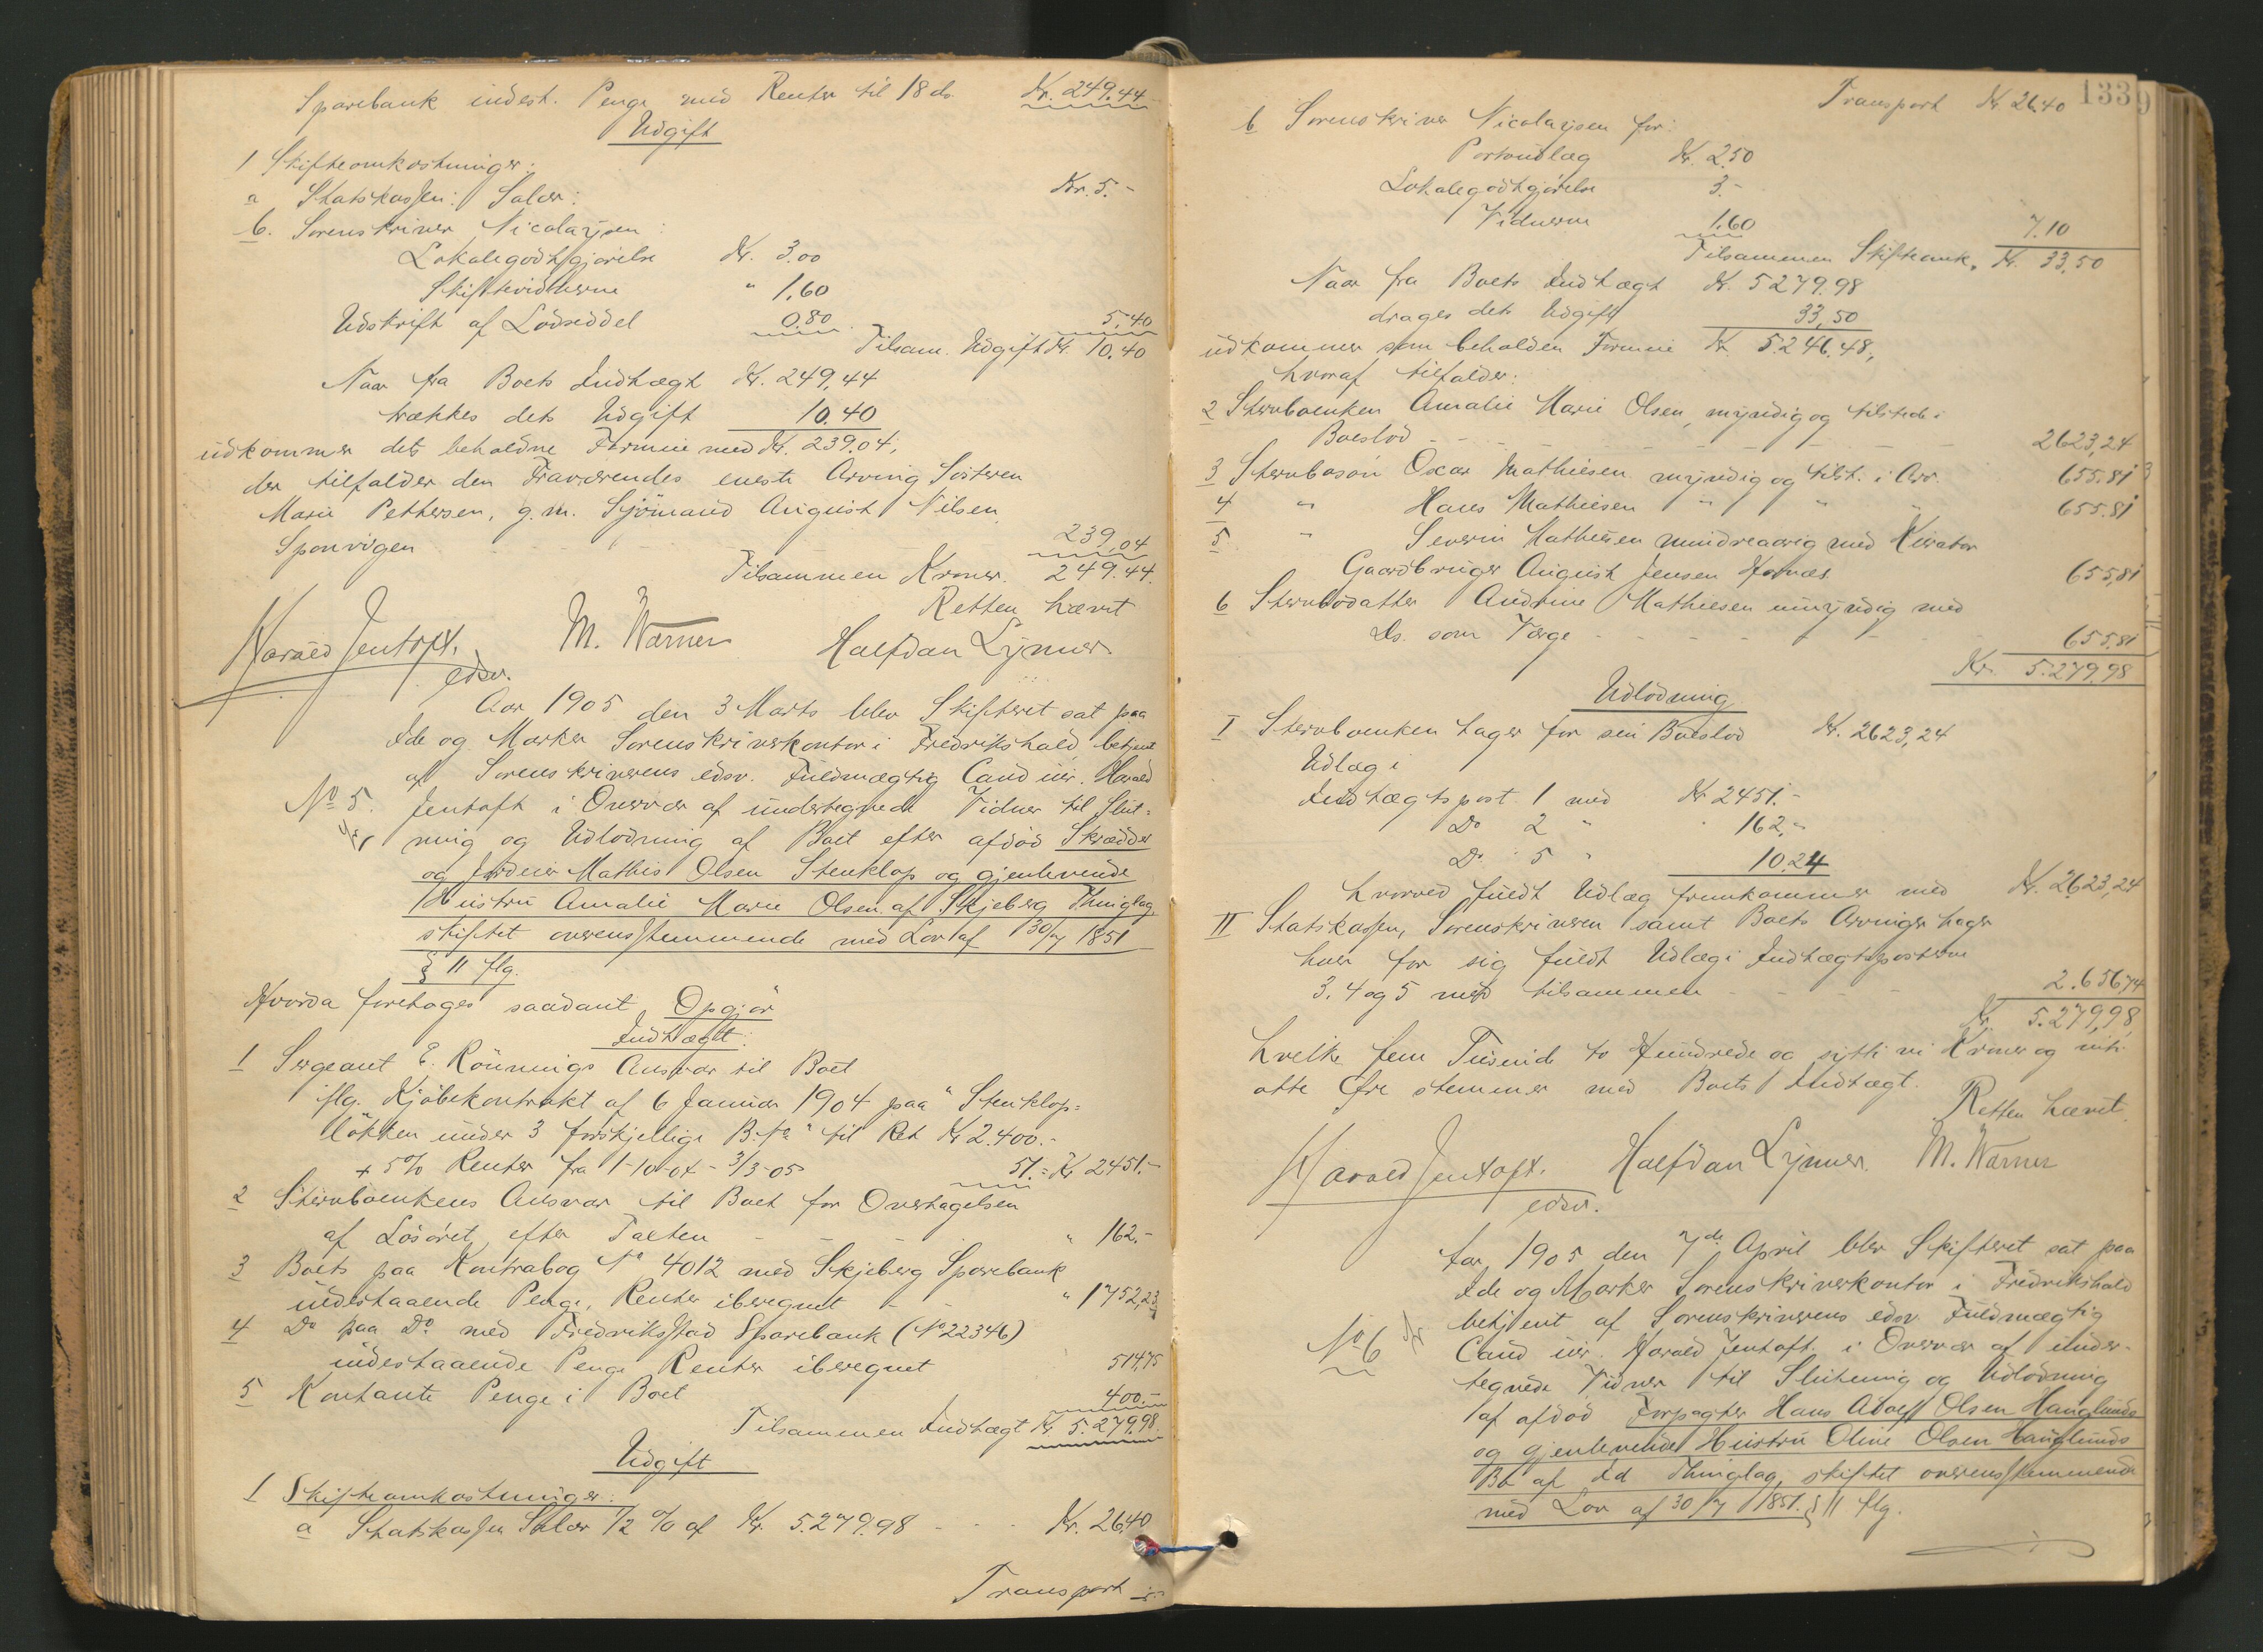 Sparebank indest. Penge med Renter til 18 ds. Kr. 249.44
Udgift
1 Skifteomkostninger:
a Statskassen: Salær: Kr. 5.-
b. Sorenskriver Nicolaysen:
Lokalegodtgjørelse Kr. 3.00
Skiftevidnerne " 1,60
Udskrift af Lodseddel 0.80 5,40
Tilsam. Udgift Kr. 10,40
Naar fra Boets Indtægt Kr. 249,44
trækkes dets Udgift 10.40
udkommer dets beholdne Formue med Kr. 239.04,
der tilfalder den Fraværendes eneste Arving Søsteren
Marie Pettersen, g.m. Sjømand August Nilsen
Sponvigen 239,04
Tilsammen Kroner. 249.44.
Retten hævet
Harald Jentoft. M. Warner Halfdan Lynner.
edsv.
Aar 1905 den 3 Marts blev Skifteret sat paa
Ide og Marker Sorenskriverkontor i Fredrikshald betjent
af Sorenskriverens edsv. Fuldmægtig Cand jur. Harald
No 5. Jentoft i Overvær af undertegnede Vidner til Slut-
ning og Udlodning af Boet efter afdød Skrædder
og Jordeier Mathis Olsen Stenklop og gjenlevende
Hustru Amalie Marie Olsen af Skjeberg Thinglag,
skiftet overensstemmende med Lov af 30/7 1851
§ 11 flg.
Hvorda foretages saadant Opgjør
Indtægt:
1 Sergeant E. Rönnings Ansvar til Boet
iflg. Kjøbekontrakt af 6 Januar 1904 paa "Stenklop-
løkken under 3 forskjellige B.No" til Rest Kr 2.400.-
+ 5% Renter fra 1-10-04 - 3/3-05 51.- Kr 2451.-
2 Stervboenkens Ansvar til Boet for Overtagelsen
af Løsøret efter Taxten - - - " 162.-
3 Boets paa Kontrabog No 4012 med Skjeberg Sparebank
indestaaende Penge, Renter iberegnet - - " 1752,23
4 Do paa Do. med Fredriksstad Sparebank (No 22346)
indestaaende Penge Renter iberegnet 514,75
5 Kontante Penge i Boet 400.-
Tilsammen Indtægt Kr. 5.279.98
Udgift
1 Skifteomkostninger:
a Statskassen Salær 1/2 % af Kr. 5.279.98 - - - Kr. 26,40
Transport
Transport Kr. 26.40 133
b Sorenskriver Nicolaysen for:
Portoudlæg Kr. 2.50
Lokalegodtgjørelse 3.-
Vidnerne 1.60 7.10
Tilsammen Skifteomk. Kr. 33,50
Naar fra Boets Indtægt Kr. 5279.98
drages dets Udgift 33,50
udkommer som beholden Formue Kr. 5.246,48,
hvoraf tilfalder:
2 Stervboenken Amalie Marie Olsen, myndig og tilstede i
Boeslod - - - - - - - 2623,24
3 Stervbosøn Oscar Mathiesen myndig og tilst. i Arv. 655.81
4 " Hans Mathiesen " " " 655.81
5 " Severin Mathiesen mindreaarig med Kurator
Gaardbruger August Jensen 655,81
6 Stervbodatter Andrine Mathiesen umyndig med
Ds. som Værge - - - - 655,81
Kr. 5.279.98
Udlodning
I Stervboenken tager for sin Boeslod Kr. 2623,24
Udlæg i
Indtægtspost 1 med Kr 2451.-
Do 2 " 162,-
Do 5 " 10.24
hvorved fuldt Udlæg fremkommer med Kr. 2623,24
II Statskassen, Sorenskriveren samt Boets Arvinger tager
hver for sig fuldt Udlæg i Indtægtsposterne
3. 4 og 5 med tilsammen - - - - 2.656,74
Kr. 5.279,98,
hvilke fem Tusind to Hundrede og sytti ni Kroner og nitti
otte Øre stemmer med Boets Indtægt.
Retten hævet
Harald Jentoft. Halfdan Lynner. M. Warner
edsv.
Aar 1905 den 7de April blev Skifteret sat paa
Ide og Marker Sorenskriverkontor i Fredrikshald
betjent af Sorenskriverens edsv. Fuldmægtig
No 6 Cand jur. Harald Jentoft i Overvær af under-
tegnede Vidner til Slutning og Udlodning
af afdød Forpagter Hans Adolf Olsen Hauglunds
og gjenlevende Hustru Oline Olsen Hauglunds
Bo af Id Thinglag, skiftet overensstemmende
med Lov af 30/7 1851. § 11 flg.